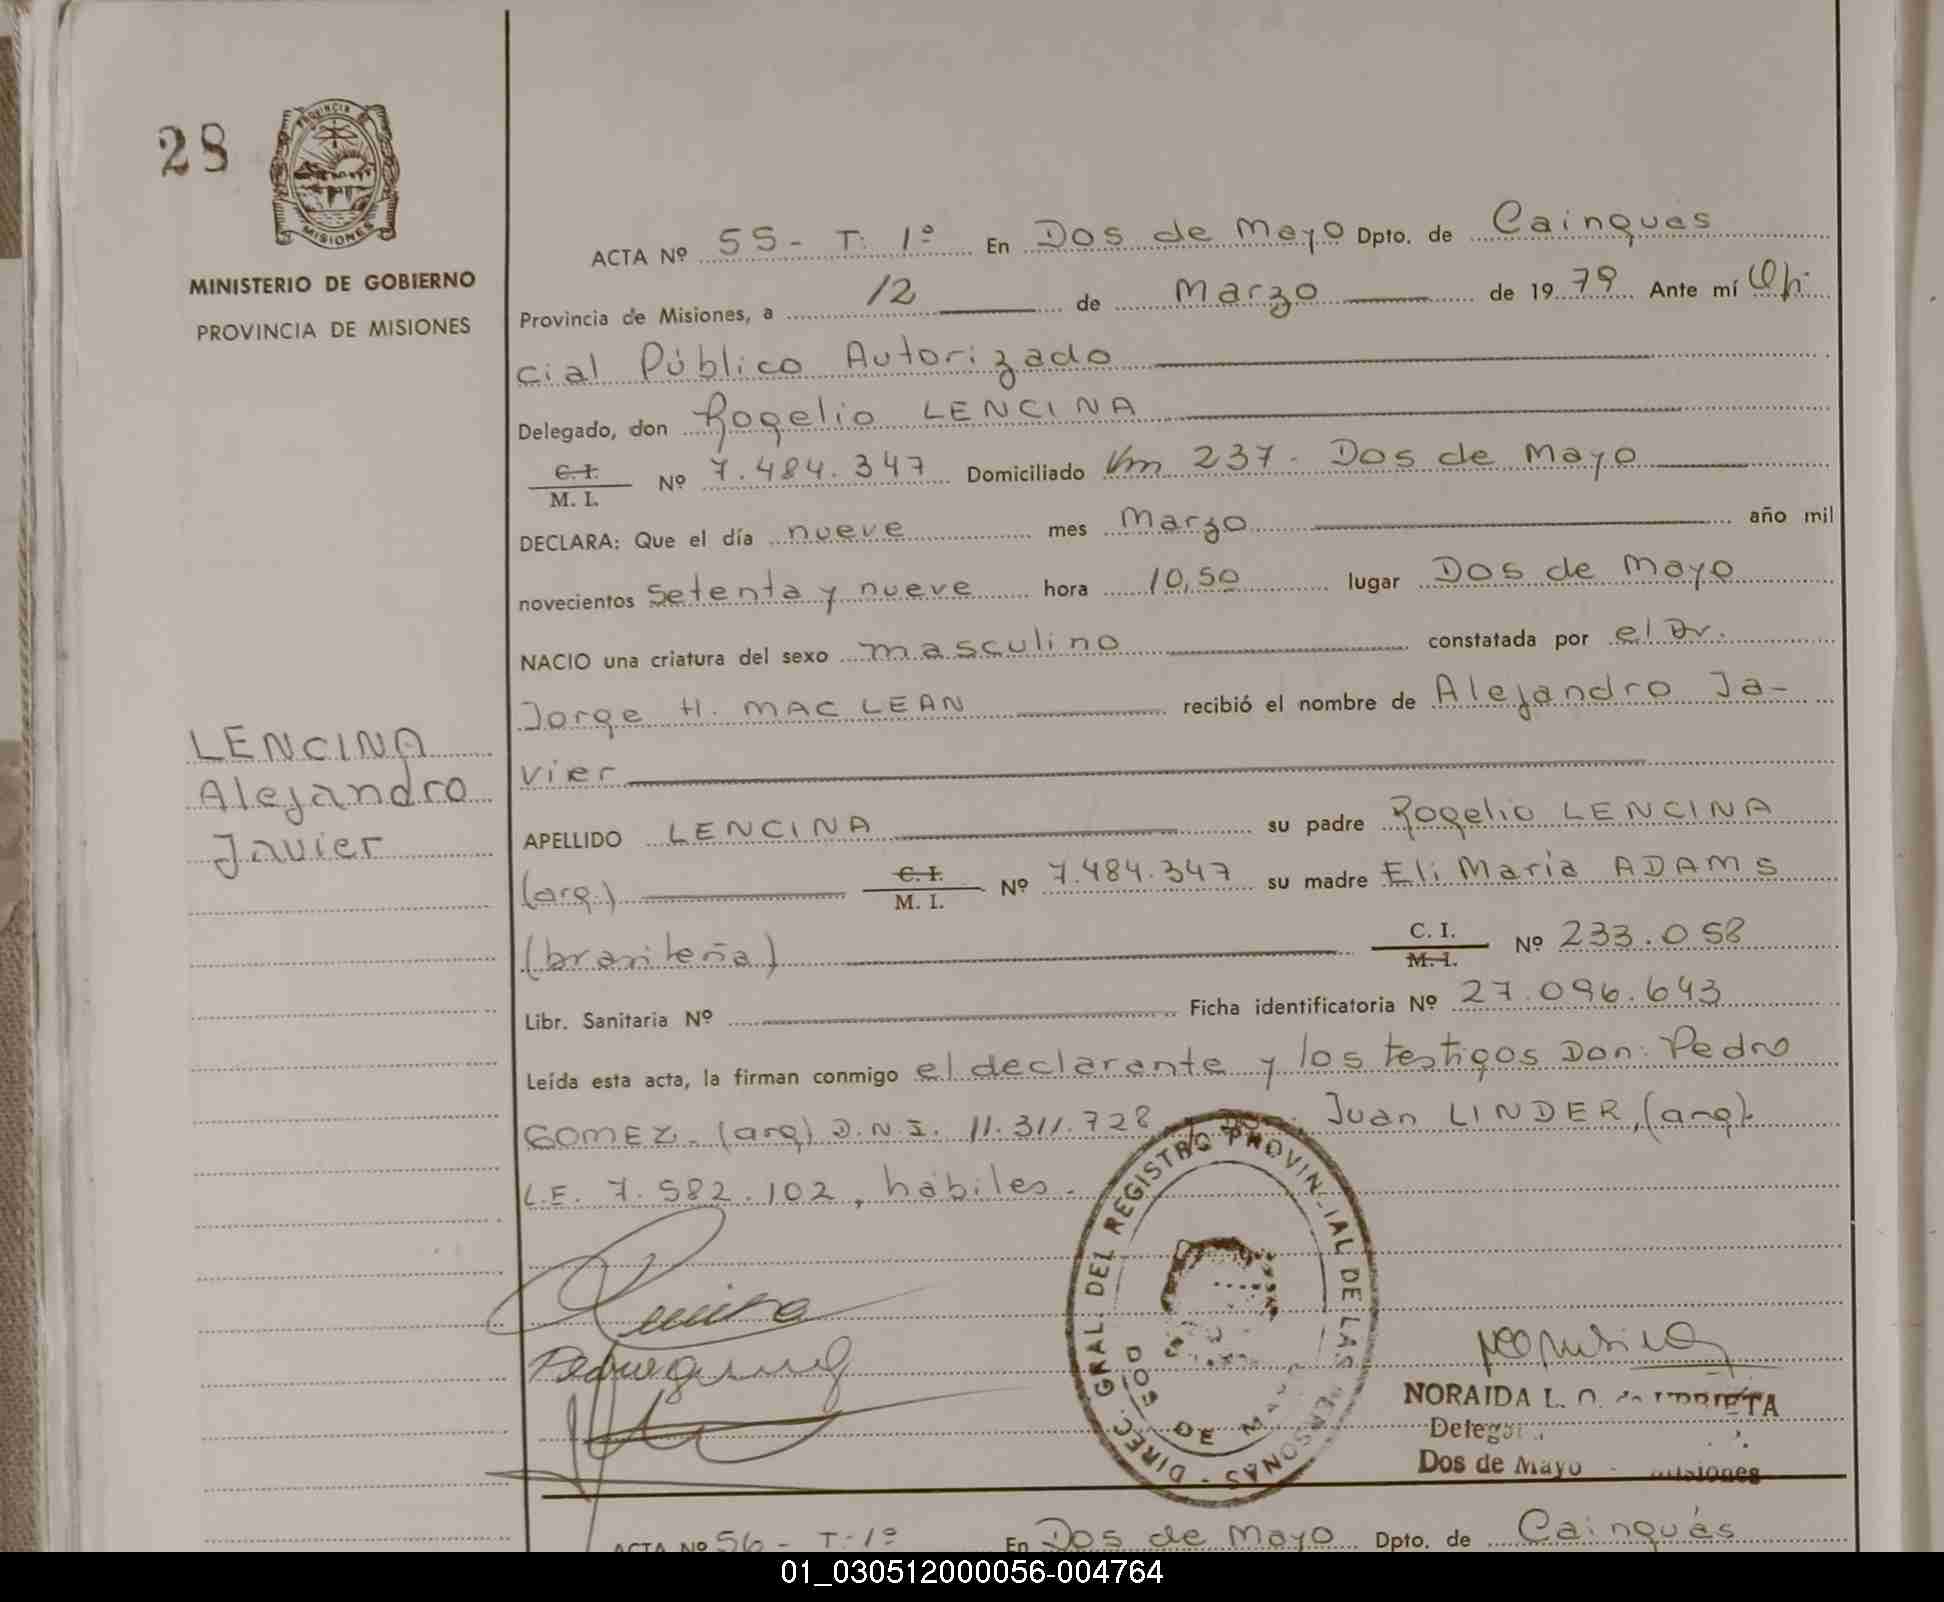 28
PROVINCIA
MISIONES
MINISTERIO DE GOBIERNO
PROVINCIA DE MISIONES
LENCINA
Alejandro
Javier
ACTA Nº 55 - T. 1º En Dos de Mayo Dpto. de Cainguás
Provincia de Misiones, a 12 de Marzo de 1979 Ante mí Ofi
cial Público Autorizado
Delegado, don Rogelio LENCINA
C.I. M. I. Nº 7.484.347 Domiciliado Km 237 - Dos de Mayo
DECLARA: Que el día nueve mes Marzo año mil
novecientos setenta y nueve hora 10,50 lugar Dos de Mayo
NACIO una criatura del sexo masculino constatada por el Dr.
Jorge H. MAC LEAN recibió el nombre de Alejandro Ja-
vier
APELLIDO LENCINA su padre Rogelio LENCINA
(arg.) C.I. M. I. Nº 7.484.347 su madre Eli María ADAMS
(brasileña) C. I. M.I. Nº 233.058
Libr. Sanitaria Nº Ficha identificatoria Nº 27.096.643
Leída esta acta, la firman conmigo el declarante y los testigos Don: Pedro
GOMEZ - (arg) D.N.I. 11.311.728 Juan LINDER, (arg).
L.E. 7.582.102, hábiles.
DIREC. GRAL DEL REGISTRO PROVINCIAL DE LAS PERSONAS -
DOS DE MAYO
NORAIDA L.
Dos de Mayo - Misiones
ACTA Nº 56 - T. 1º En Dos de Mayo Dpto. de Cainguás
01_030512000056-004764